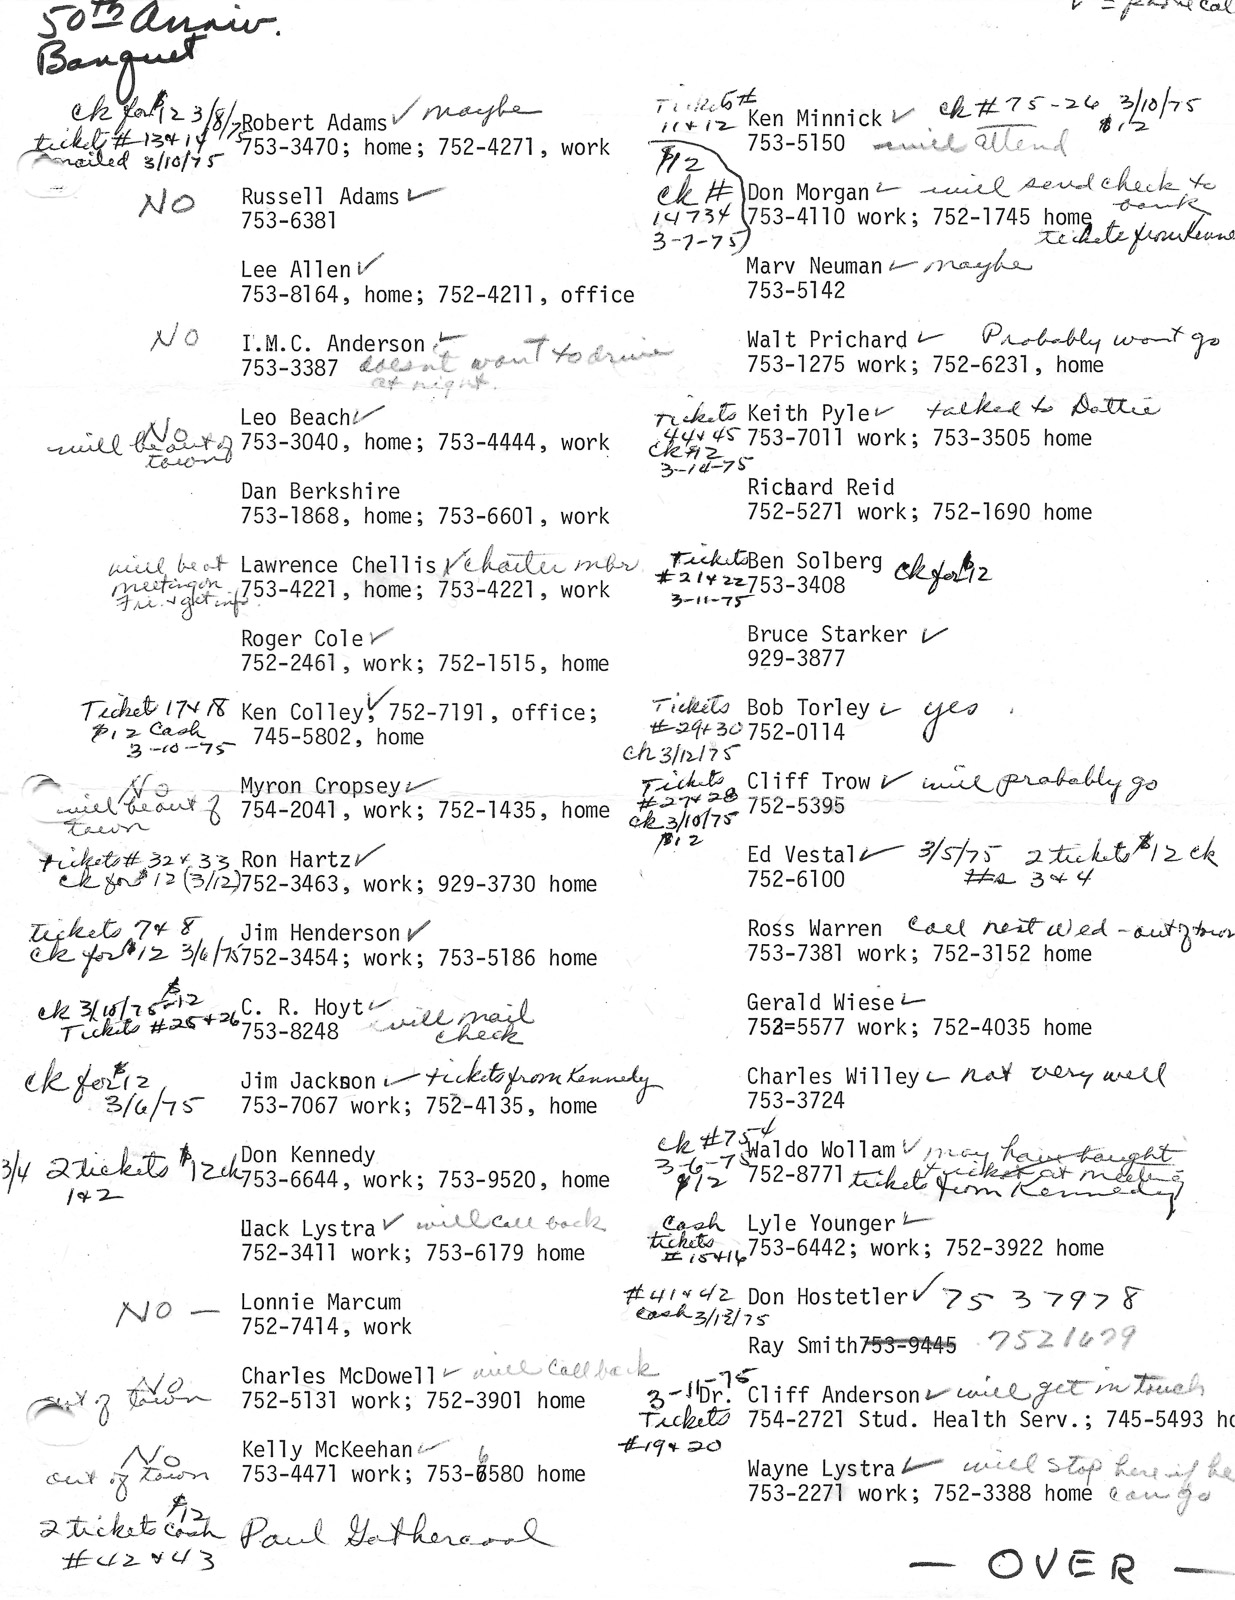 50th Anniv.
Banquet
ck for $12 3/8/75
ticket # 13+14
mailed 3/10/75
Robert Adams ✓ maybe
753-3470; home; 752-4271, work
NO
Russell Adams ✓
753-6381
Lee Allen ✓
753-8164, home; 752-4211, office
NO
I.M.C. Anderson ✓
753-3387 doesn't want to drive
at night.
No
will be out of
town
Leo Beach ✓
753-3040, home; 753-4444, work
Dan Berkshire
753-1868, home; 753-6601, work
will be at
meeting on
Fri. + get info.
Lawrence Chellis ✓ charter mbr
753-4221, home; 753-4221, work
Roger Cole ✓
752-2461, work; 752-1515, home
Ticket 17+18
$12 Cash
3-10-75
Ken Colley, ✓ 752-7191, office;
745-5802, home
No
will be out of
town
Myron Cropsey ✓
754-2041, work; 752-1435, home
tickets # 32+33
ck for $12 (3/12)
Ron Hartz ✓
752-3463, work; 929-3730 home
tickets 7+8
ck for $12 3/6/75
Jim Henderson ✓
752-3454; work; 753-5186 home
ck 3/10/75 $12
Tickets #25+26
C. R. Hoyt ✓
753-8248 will mail
check
ck for $12
3/6/75
Jim Jackson ✓ tickets from Kennedy
753-7067 work; 752-4135, home
3/4 2 tickets $12 ck
1+2
Don Kennedy
753-6644, work; 753-9520, home
Jack Lystra ✓ will call back
752-3411 work; 753-6179 home
NO —
Lonnie Marcum
752-7414, work
No
out of town
Charles McDowell ✓ will call back
752-5131 work; 752-3901 home
No
out of town
Kelly McKeehan ✓
753-4471 work; 753-6580 home
$12
2 tickets cash
#42+43
Paul Gathercoal
✓ = phone cal
Tickets #
11+12
Ken Minnick ✓ ck #75-26 3/10/75
$12
753-5150 will attend
$12
ck #
14734
3-7-75
Don Morgan ✓ will send check to
bank
753-4110 work; 752-1745 home
tickets from Kenne
Marv Neuman ✓ maybe
753-5142
Walt Prichard ✓ Probably wont go
753-1275 work; 752-6231, home
Tickets
44+45
ck $12
3-14-75
Keith Pyle ✓ talked to Dottie
753-7011 work; 753-3505 home
Richard Reid
752-5271 work; 752-1690 home
Tickets
#21+22
3-11-75
Ben Solberg ck for $12
753-3408
Bruce Starker ✓
929-3877
Tickets
#29+30
ck 3/12/75
Bob Torley ✓ yes.
752-0114
Tickets
#27+28
ck 3/10/75
$12
Cliff Trow ✓ will probably go
752-5395
Ed Vestal ✓ 3/5/75 2 tickets $12 ck
#s 3+4
752-6100
Ross Warren call next Wed - out of town
753-7381 work; 752-3152 home
Gerald Wiese ✓
752=5577 work; 752-4035 home
Charles Willey ✓ not very well
753-3724
ck #754
3-6-75
$12
Waldo Wollam ✓ may have bought
ticket at meeting
752-8771 tickets from Kennedy
Cash
tickets
#15+16
Lyle Younger ✓
753-6442; work; 752-3922 home
#41+42
cash 3/13/75
Don Hostetler ✓ 7537978
Ray Smith 753-9445 7521679
3-11-75
Tickets
#19+20
Dr. Cliff Anderson ✓ will get in touch
754-2721 Stud. Health Serv.; 745-5493 ho
Wayne Lystra ✓ will stop here if he
753-2271 work; 752-3388 home can go
— OVER —